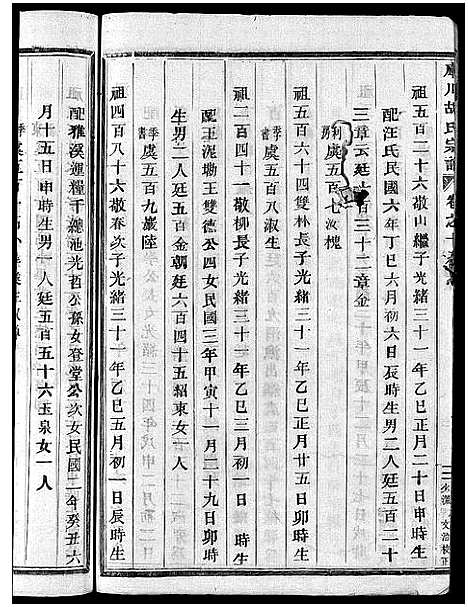 川胡氏宗譜
祖五百二十六敬山繼子光緒三十一年乙巳正月二十日申時生
配汪氏民國六年丁巳六月初六日辰時生男二人廷五百二十
三章云廷六百三十二章金
虞五百七汝槐
祖五百六十四雙林長子光緒三十一年乙巳正月廿五日卯時生
季書虞五百八淑生
祖二百四十一敬柳長子光緒三十一年乙巳三月初一日 時生
配王泥塘王雙德公四女民國三年甲寅十一月二十九日卯時
生男二人廷五百金朝廷六百四十五紹東女一人
季書虞五百九巖陸
祖四百八十六敬春次子光緒三十一年乙巳五月初一日辰時生
配雅溪運糧千總池光哲公孫女登堂公次女民國二年癸丑六
月十五日申時生男一人廷五百五十六玉泉女一人